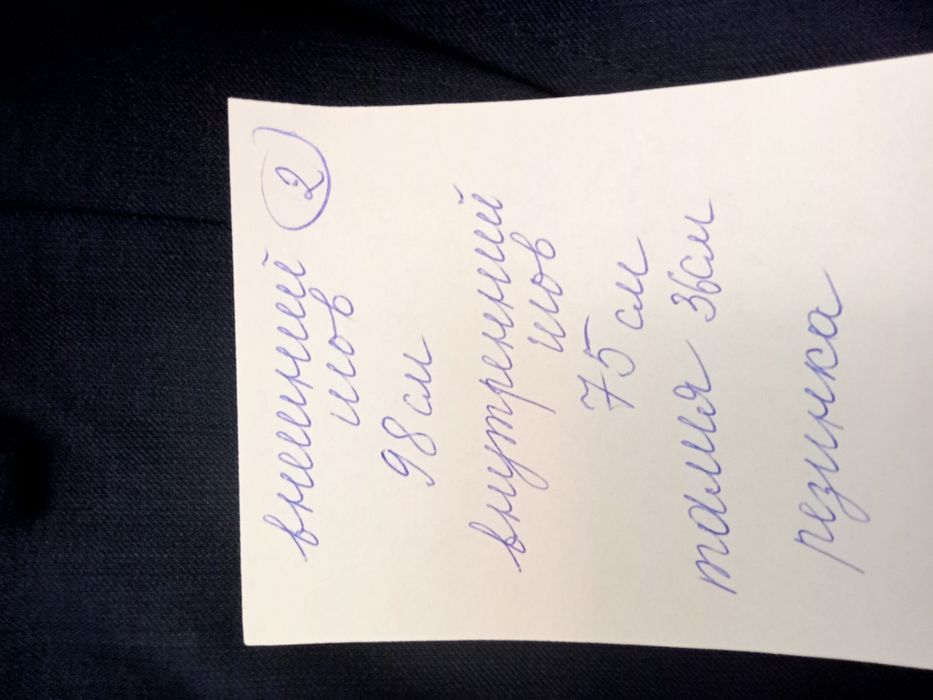 внешний ②
шов
98 см
внутренний
шов
75 см
талия 36см
резинка